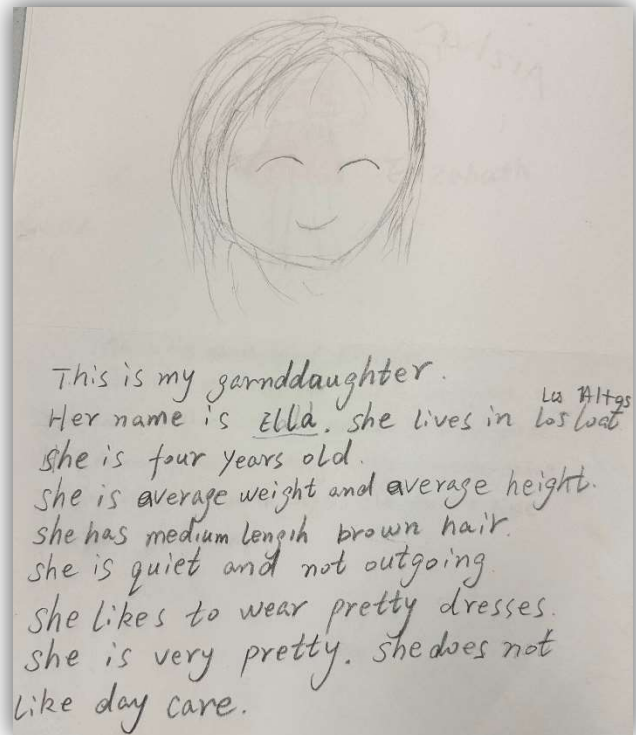 This is my garnddaughter.
Los Altos
Her name is Ella. she lives in
she is four years old.
she is average weight and average height.
she has medium length brown hair.
she is quiet and not outgoing
she likes to wear pretty dresses.
she is very pretty. she does not
like day care.